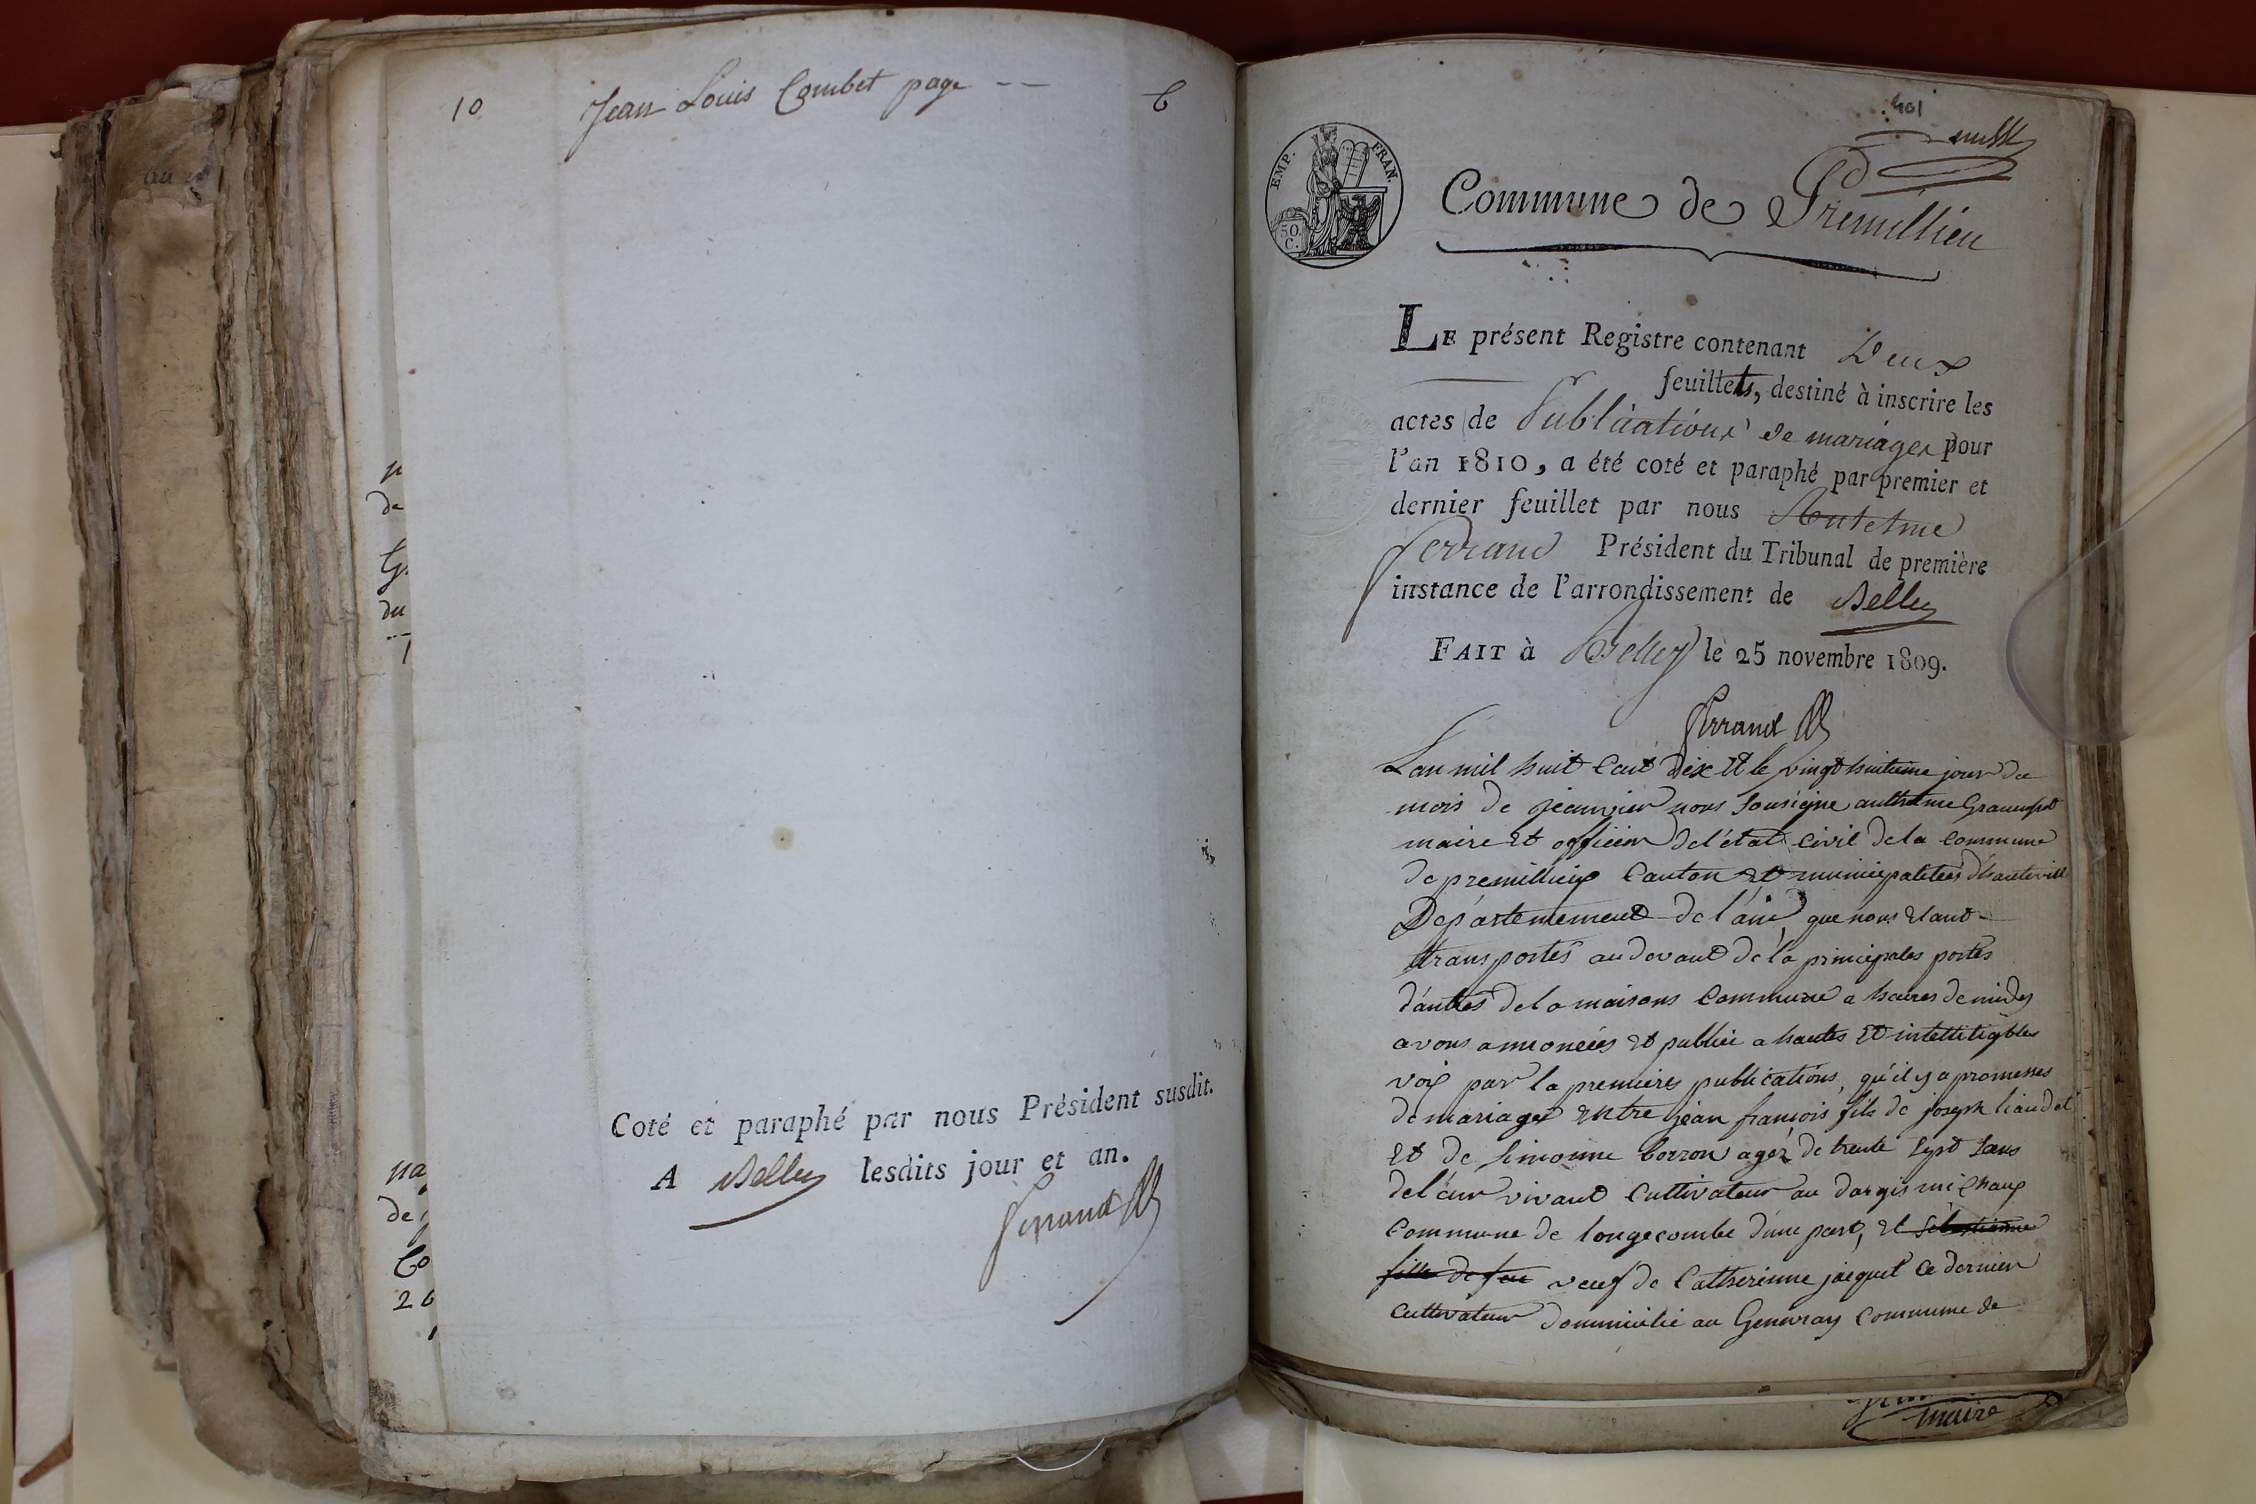 10 Jean Louis Combet page -- 6
Coté et paraphé par nous Président susdit.
A Belley lesdits jour et an.
Ferrand
na
de
Co
26
de
du
401
EMP. FRAN.
50.
C.
Commune de Premillieu
LE présent Registre contenant Deux
feuillets, destiné à inscrire les
actes de Publications de mariages pour
l'an 1810, a été coté et paraphé par premier et
dernier feuillet par nous Anthelme
Ferrand Président du Tribunal de première
instance de l'arrondissement de Belley
FAIT à Belley le 25 novembre 1809.
Ferrand
Lan mil huit cent dix et le vingt huitieme jour du
mois de jeanvier nous sousigne anthelme
maire et officier de létat civil de la commune
de premillieux canton et municipalitées d'hauteville
Departemement de l'ain, que nous etant
transportés au devant de la principales portes
dántrés de la maisons commune a heures de midy
avons annoncées et publiée a hautes et intelligibles
voix par la premieres publications, qu'il y a promesses
de mariages entre jean françois fils de joseph liaudet
et de simonne borron agéz de trente sept sans
del'eur vivant cultivateur au dorgis michaux
commune de longecombe d'une part, et
fille de feu veuf de Catherinne jacquet ce dernier
cultivateur dommicilié au Genevray commune de
maire